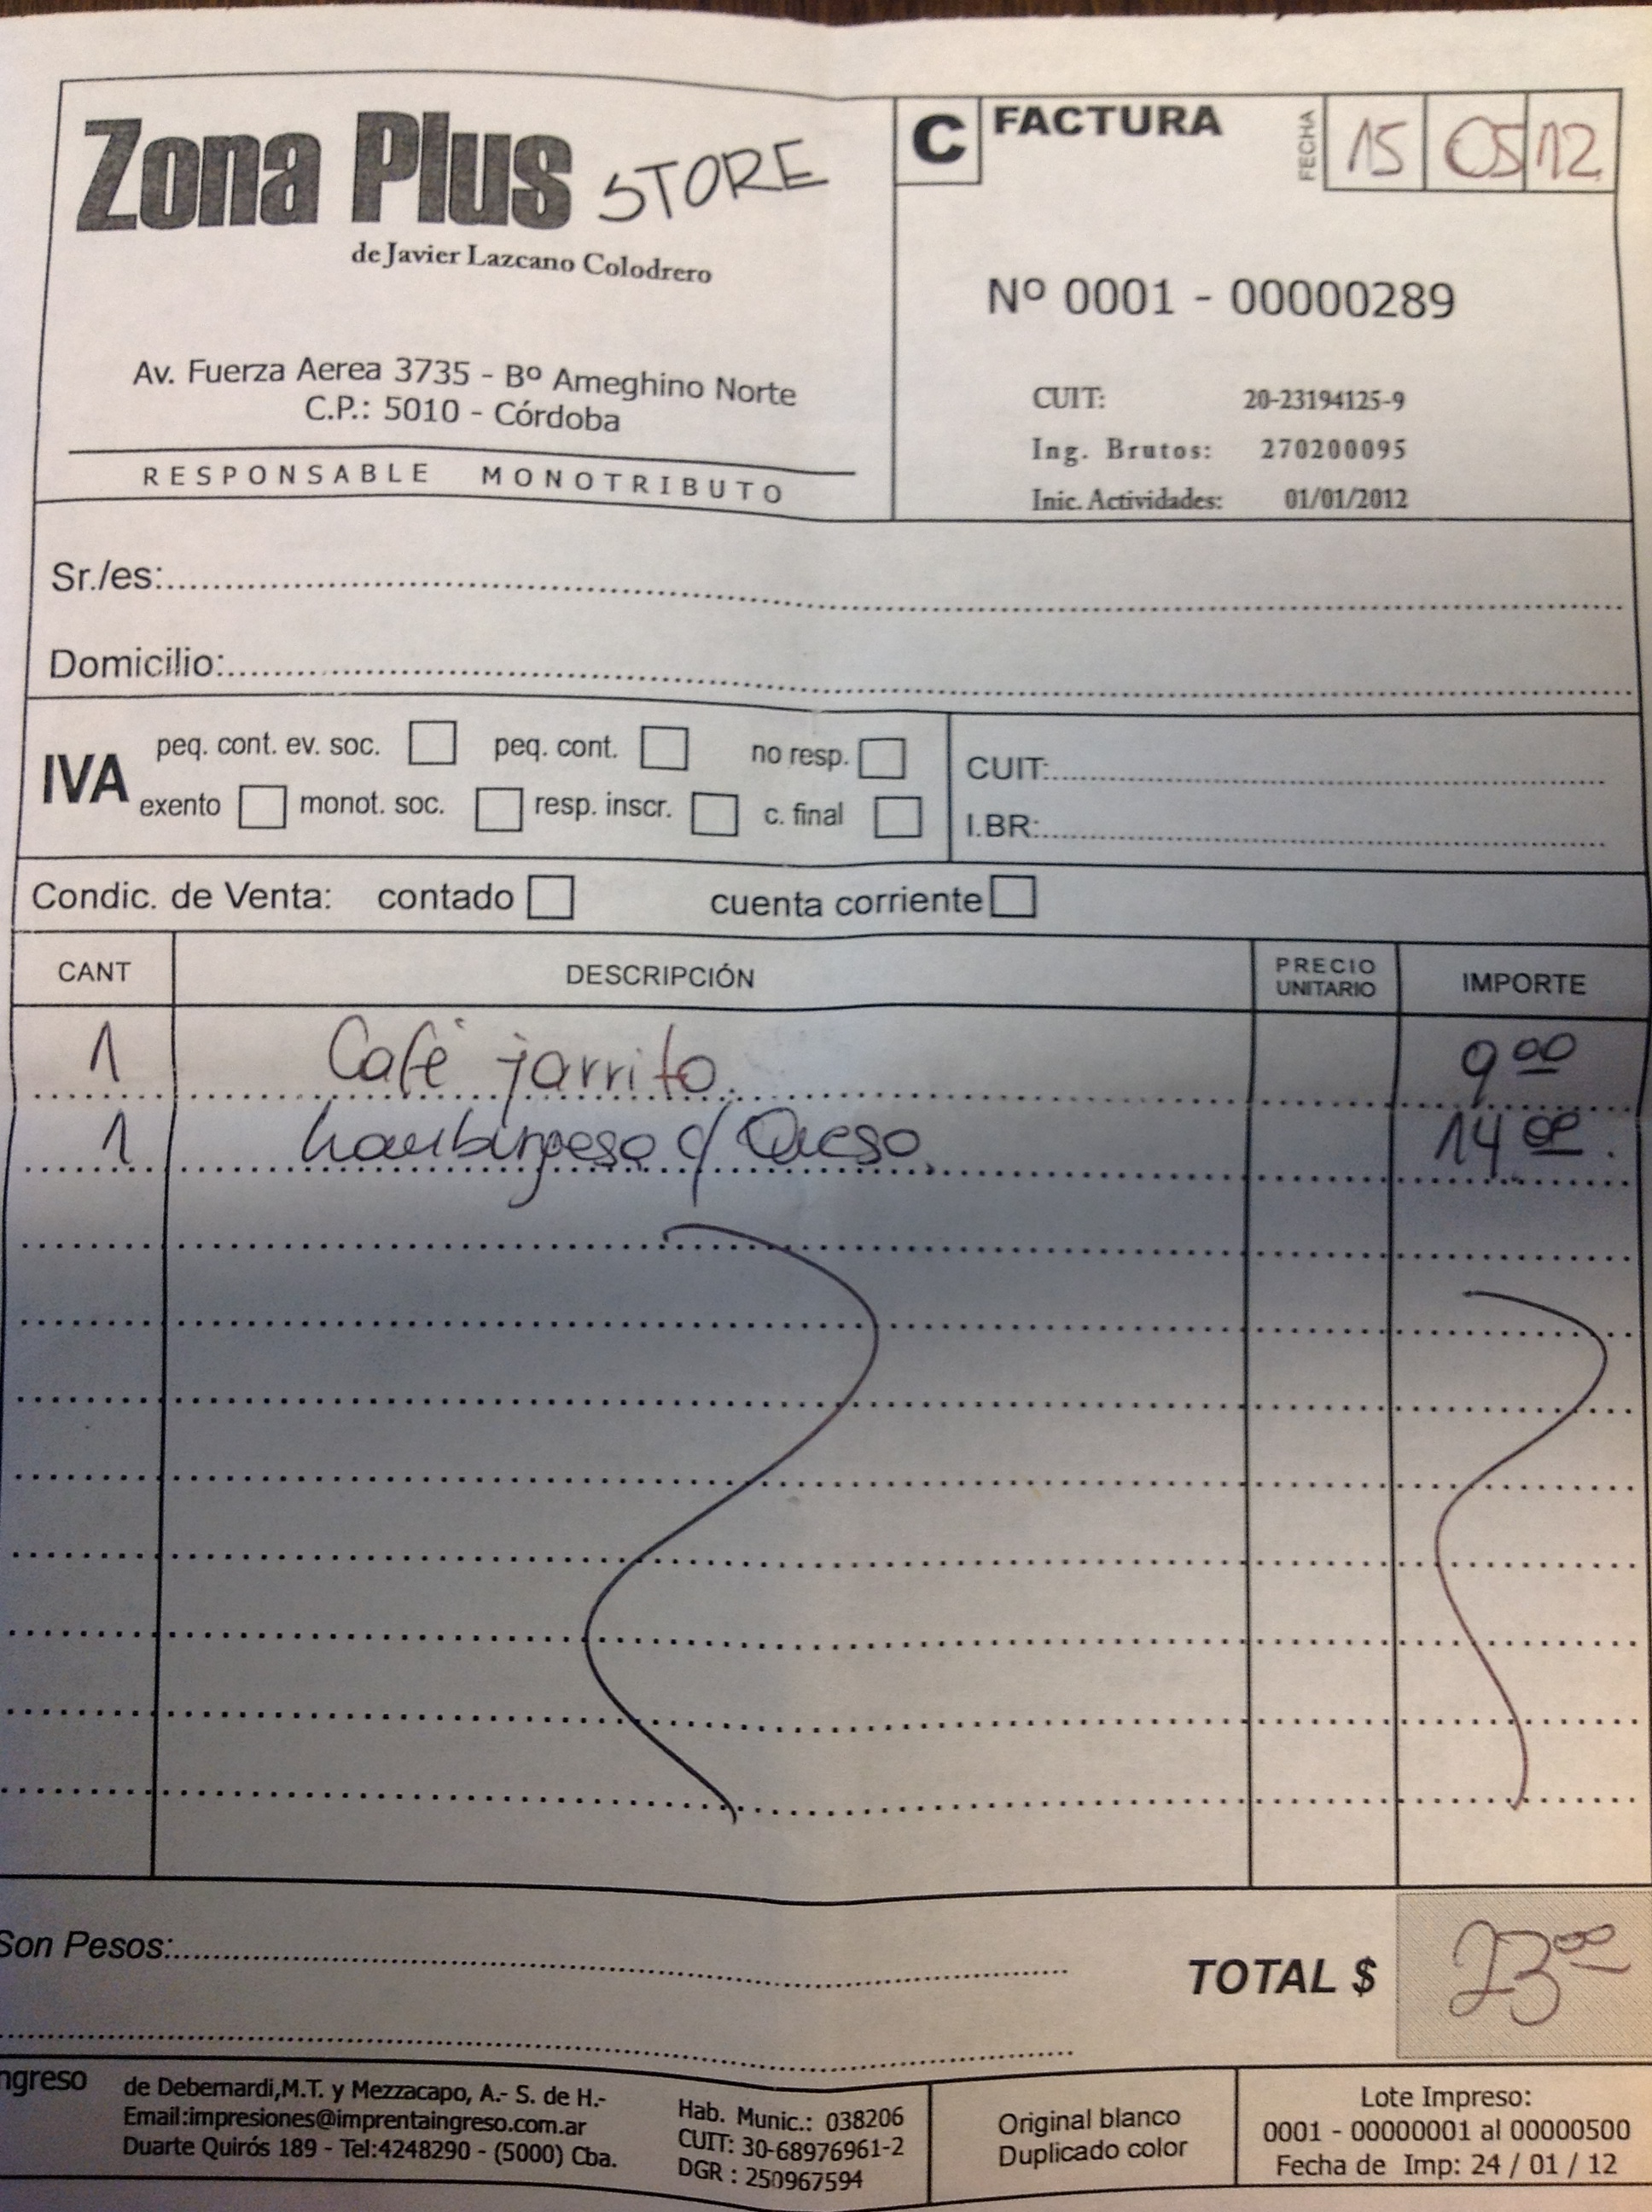 Zona Plus STORE
de Javier Lazcano Colodrero
Av. Fuerza Aerea 3735 - Bº Ameghino Norte
C.P.: 5010 - Córdoba
RESPONSABLE MONOTRIBUTO
C FACTURA
FECHA 15 05 12
Nº 0001 - 00000289
CUIT: 20-23194125-9
Ing. Brutos: 270200095
Inic. Actividades: 01/01/2012
Sr./es:
Domicilio:
IVA peq. cont. ev. soc. peq. cont. no resp.
exento monot. soc. resp. inscr. c. final
CUIT:
I.BR:
Condic. de Venta: contado cuenta corriente
CANT DESCRIPCIÓN PRECIO UNITARIO IMPORTE
1 Café jarrito. 9 00
1 hamburgesa c/ Queso. 14 00.
Son Pesos:
TOTAL $ 23 00
ngreso de Debernardi,M.T. y Mezzacapo, A.- S. de H.-
Email:impresiones@imprentaingreso.com.ar
Duarte Quirós 189 - Tel:4248290 - (5000) Cba.
Hab. Munic.: 038206
CUIT: 30-68976961-2
DGR : 250967594
Original blanco
Duplicado color
Lote Impreso:
0001 - 00000001 al 00000500
Fecha de Imp: 24 / 01 / 12